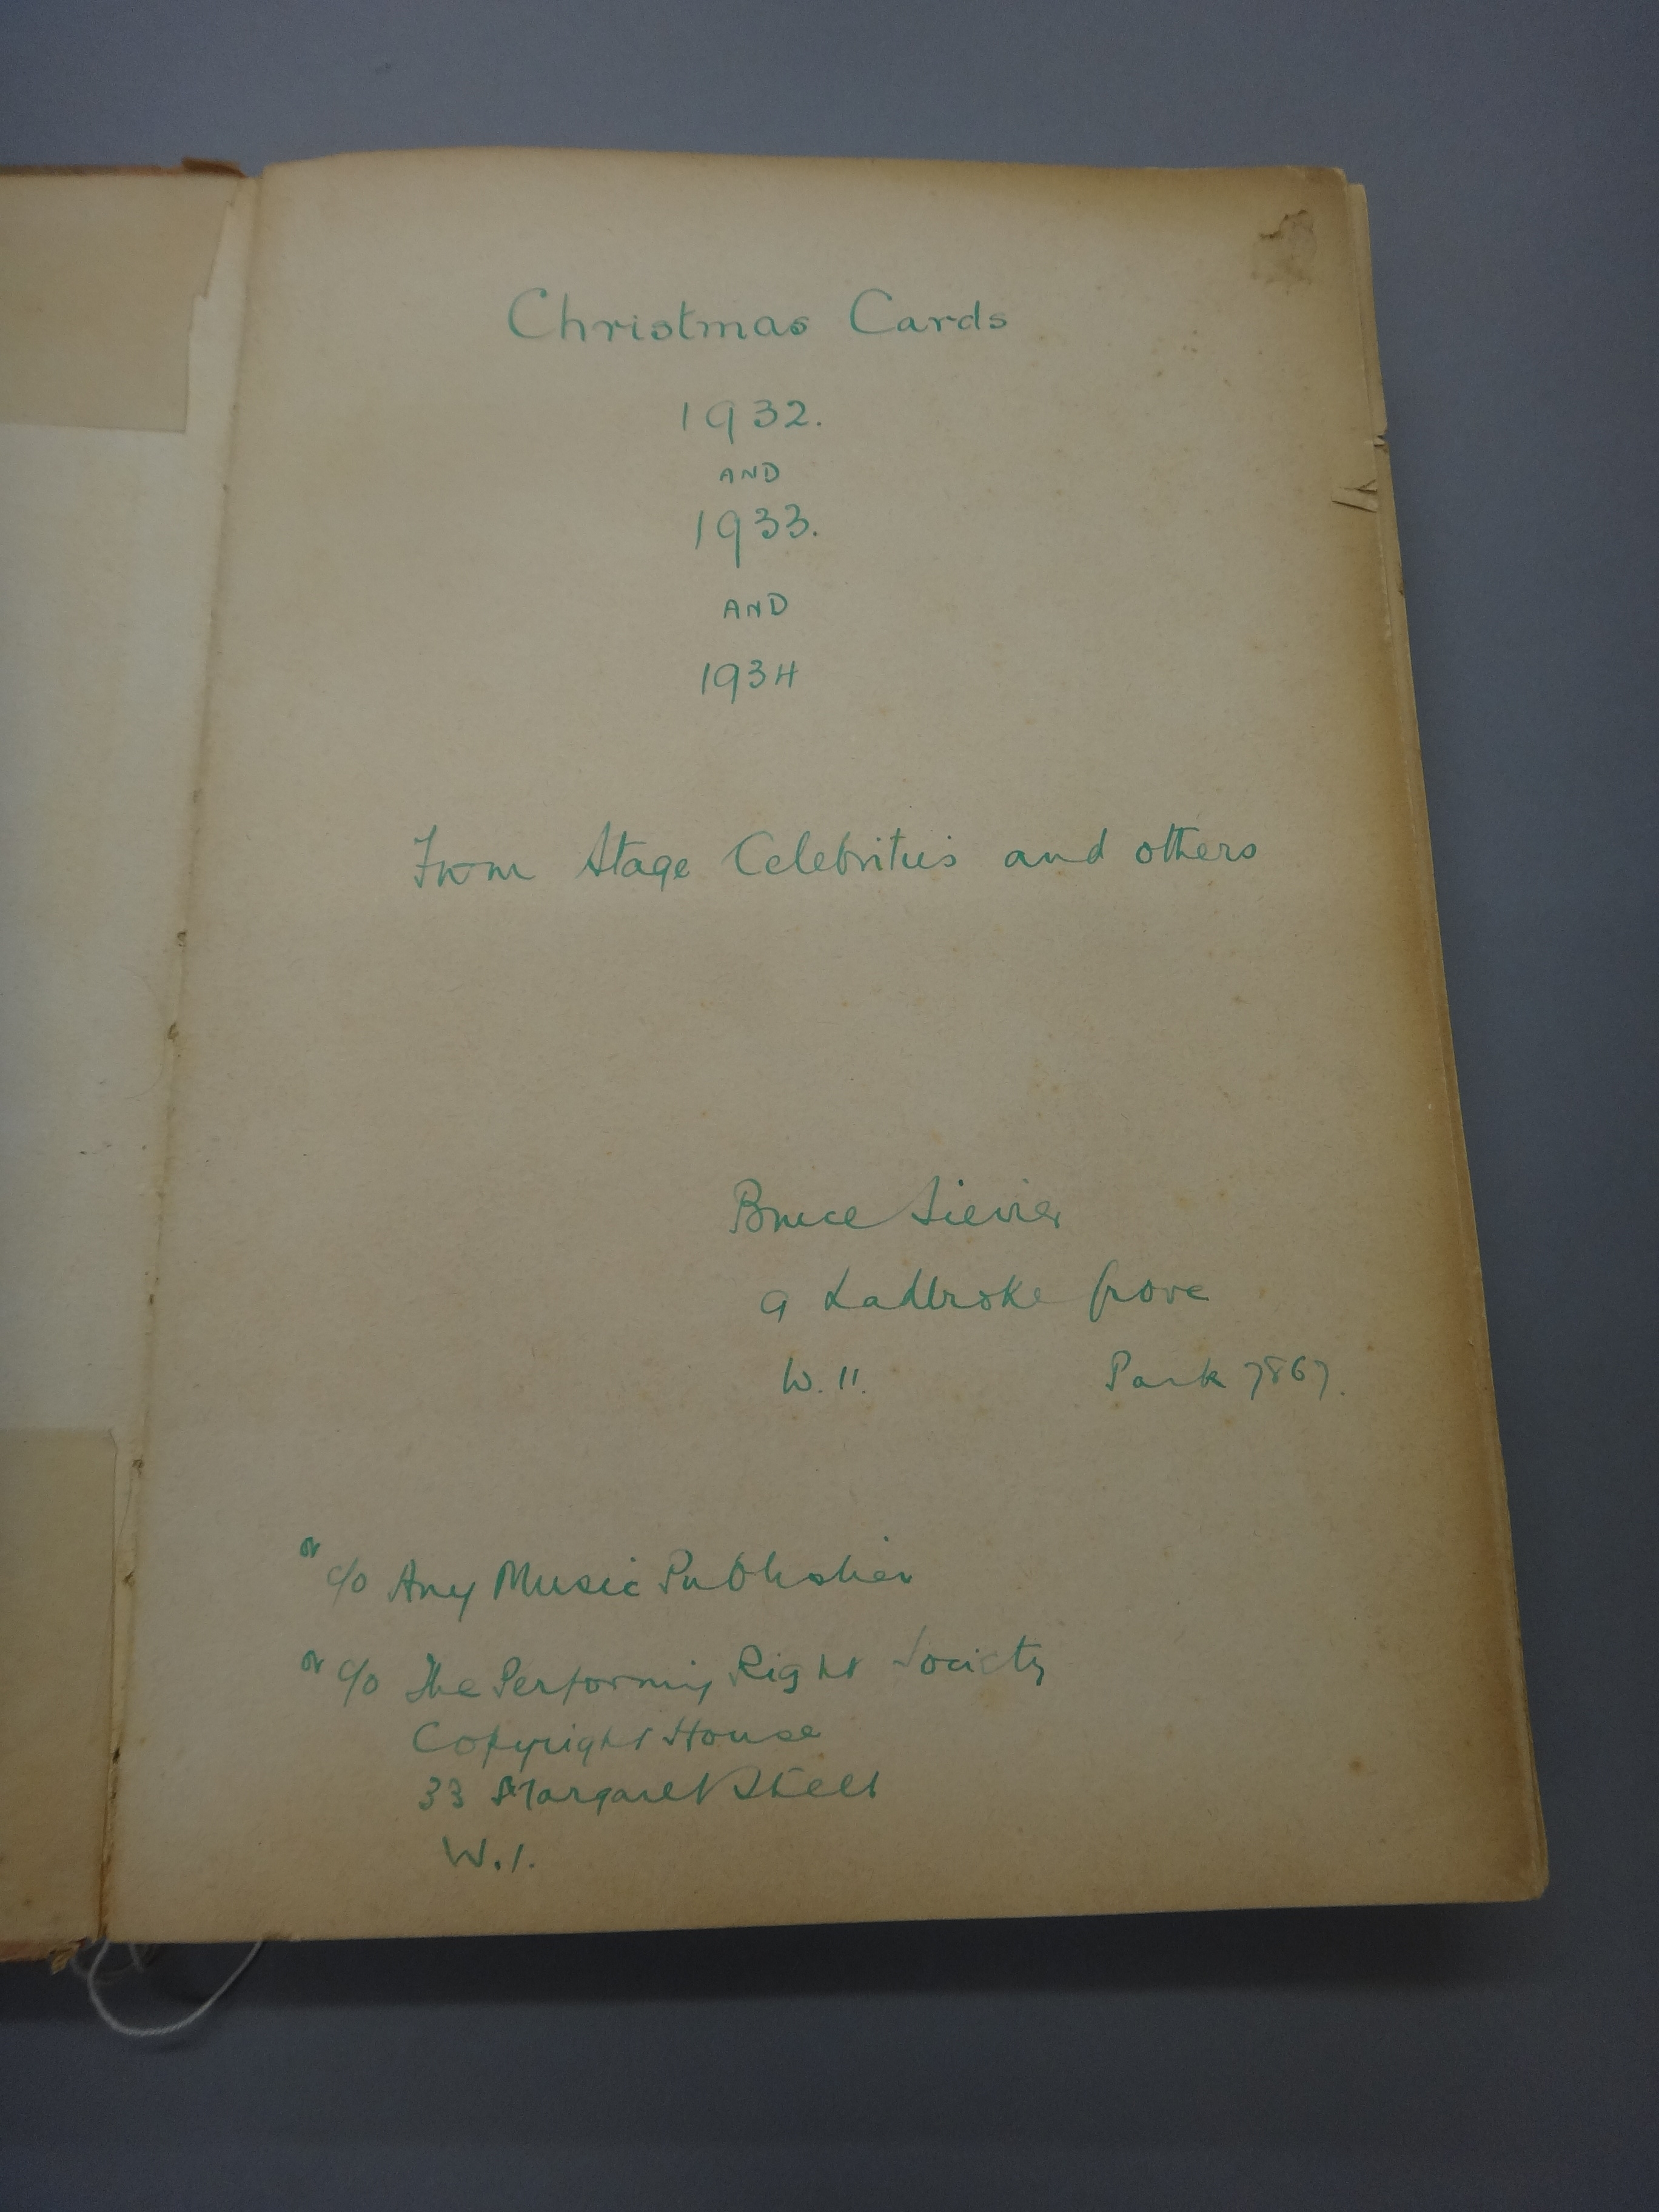 Christmas Cards
1932.
AND
1933.
AND
1934
From Stage Celebrities and others
Bruce Sievier
9 Ladbroke Grove
W. 11. Park 7867.
or c/o Any Music Publisher
or c/o The Performing Right Society
Copyright House
33 Margaret Street
W.1.